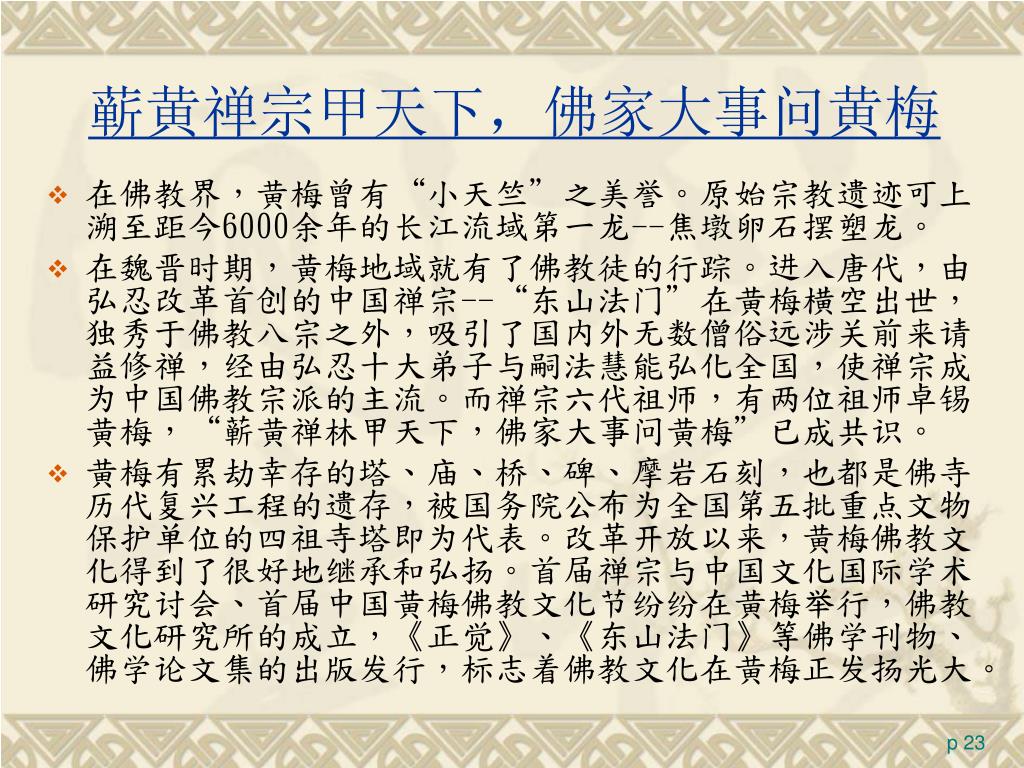 蕲黄禅宗甲天下，佛家大事问黄梅
❖ 在佛教界，黄梅曾有“小天竺”之美誉。原始宗教遗迹可上
溯至距今6000余年的长江流域第一龙--焦墩卵石摆塑龙。
❖ 在魏晋时期，黄梅地域就有了佛教徒的行踪。进入唐代，由
弘忍改革首创的中国禅宗--“东山法门”在黄梅横空出世，
独秀于佛教八宗之外，吸引了国内外无数僧俗远涉关前来请
益修禅，经由弘忍十大弟子与嗣法慧能弘化全国，使禅宗成
为中国佛教宗派的主流。而禅宗六代祖师，有两位祖师卓锡
黄梅，“蕲黄禅林甲天下，佛家大事问黄梅”已成共识。
❖ 黄梅有累劫幸存的塔、庙、桥、碑、摩岩石刻，也都是佛寺
历代复兴工程的遗存，被国务院公布为全国第五批重点文物
保护单位的四祖寺塔即为代表。改革开放以来，黄梅佛教文
化得到了很好地继承和弘扬。首届禅宗与中国文化国际学术
研究讨会、首届中国黄梅佛教文化节纷纷在黄梅举行，佛教
文化研究所的成立，《正觉》、《东山法门》等佛学刊物、
佛学论文集的出版发行，标志着佛教文化在黄梅正发扬光大。
p 23